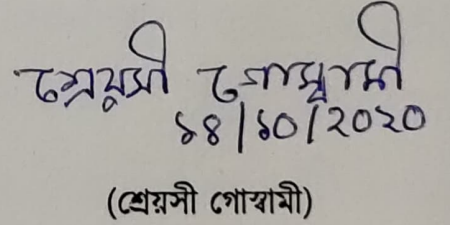 শ্রেয়সী গোস্বামী
১৪/১০/২০২০
(শ্রেয়সী গোস্বামী)